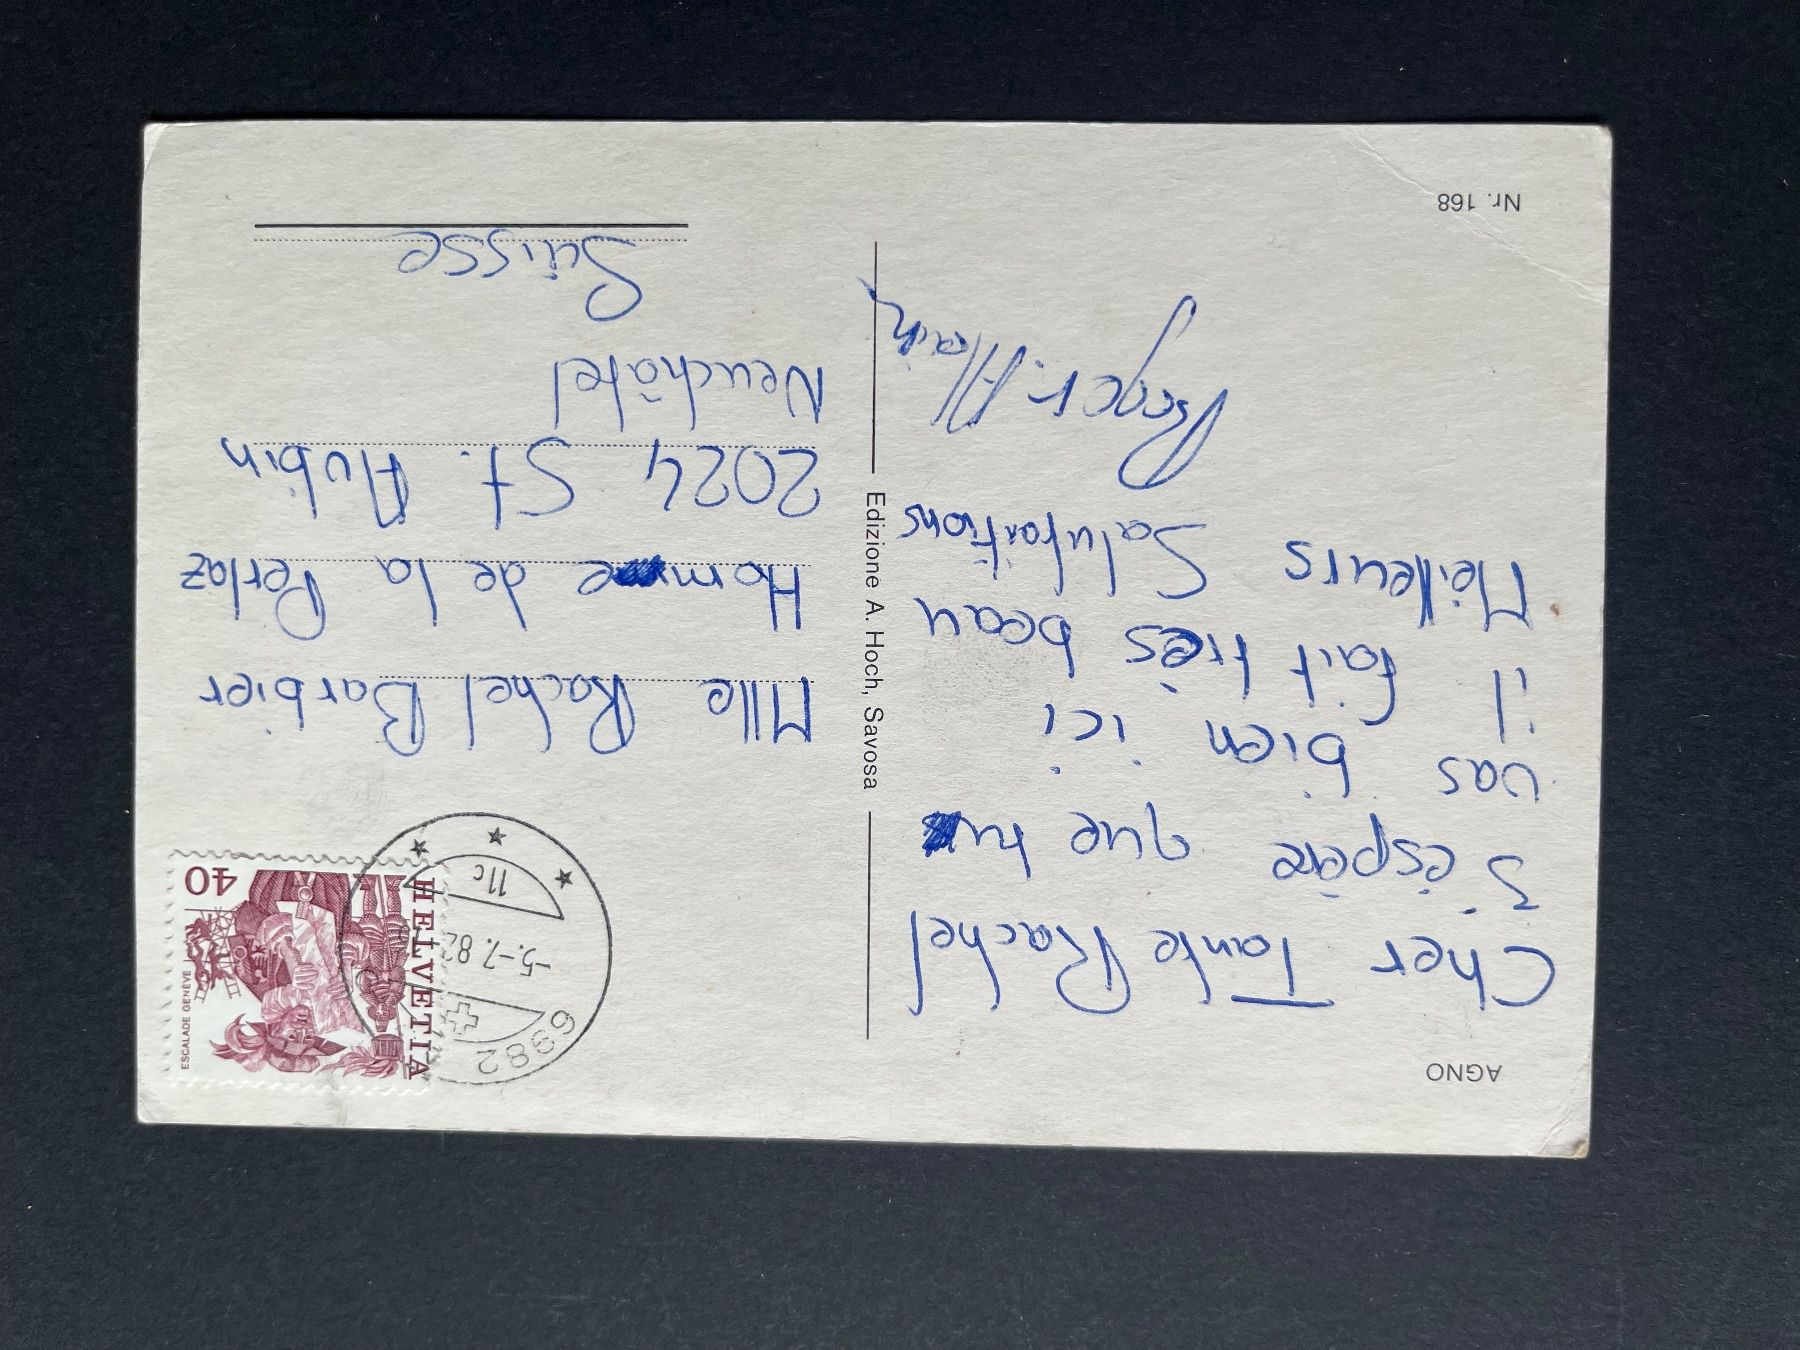 AGNO
Cher Tante Rachel
J'éspère que tu
vas bien ici
il fait très beau
Meilleurs Salutations
Roger. Alain
Nr. 168
Edizione A. Hoch, Savosa
HELVETIA
ESCALADE GENÈVE
40
6982
-5.-7.82
11c
Mlle Rachel Barbier
Home de la Perlaz
2024 St. Aubin
Neuchâtel
Suisse